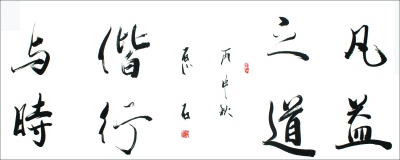 凡益
之道
与時
偕行
丙申秋